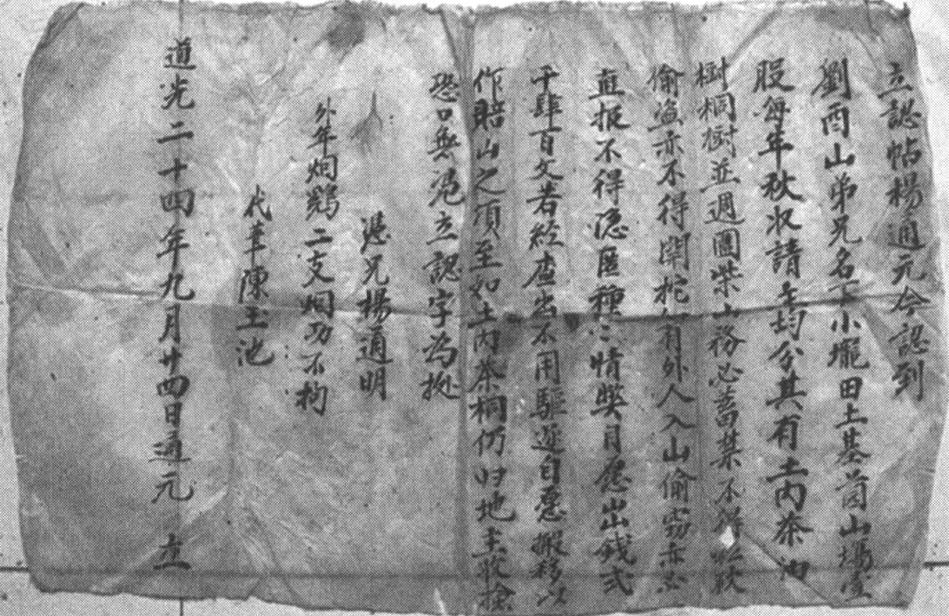 立認帖楊通元今認到
劉酉山弟兄名下小壠田土基薗山塲壹
股每年秋收請主均分其有土內茶油
樹桐樹並週圍柴山務必蓄禁不得
偷盜亦不得開挖如有外人入山偷竊亦必
直报不得隐匿種〻情獘自愿出錢弍
千肆百文若經查出不用驅逐自愿搬移以
作賠山之項至如土內茶桐仍归地主收撿
恐口無凴立認字為據
憑兄楊通明
外年烱鷄二支烱功不拘
代筆陳玉池
道光二十四年九月廿四日通元 立